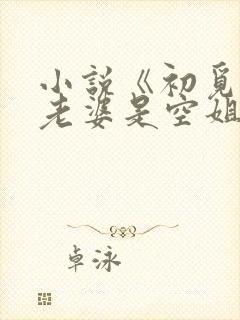 小说《初觅
老婆是空姐
卓泳